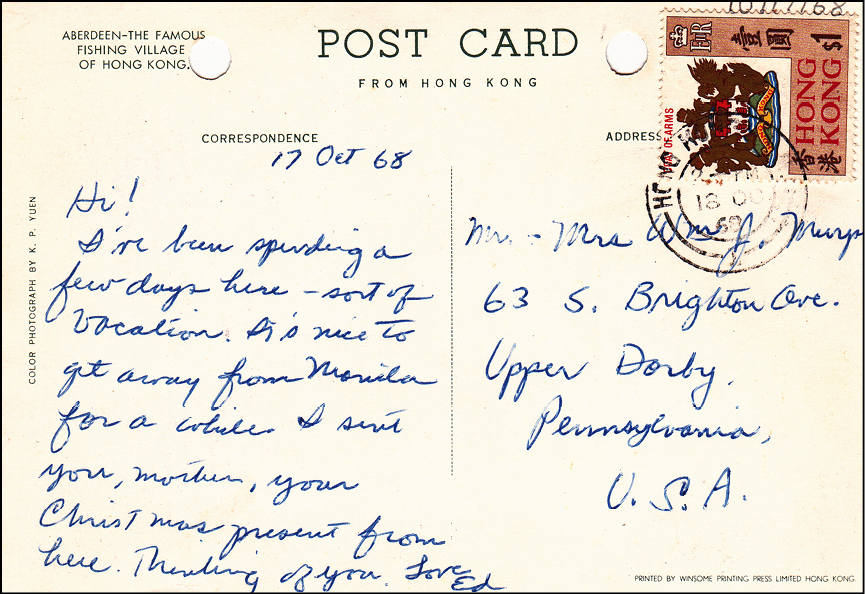 10/17/68
ABERDEEN-THE FAMOUS
FISHING VILLAGE
OF HONG KONG.
POST CARD
FROM HONG KONG
CORRESPONDENCE
ADDRESS
17 Oct 68
Hi!
I've been spending a
few days here - sort of
vacation. It's nice to
get away from Manila
for a while. I sent
you, mother, your
Christmas present from
here. Thinking of you. Love
Ed
COLOR PHOTOGRAPH BY K. P. YUEN
E II R
壹圓
$1
HONG
KONG
香港
COAT OF ARMS
HONG KONG
18 OC
Mr. - Mrs Wm J. Murp
63 S. Brighton Ave.
Upper Darby,
Pennsylvania,
U.S.A.
PRINTED BY WINSOME PRINTING PRESS LIMITED HONG KONG